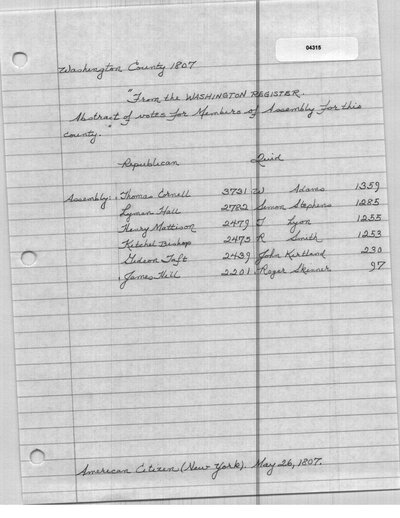 04315
Washington County 1807
"From the WASHINGTON REGISTER.
Abstract of votes for Members of Assembly for this
county."
Republican Quid
Assembly: Thomas Cornell 3731 W Adams 1359
Lyman Hall 2782 Simon Stephens 1285
Henry Mattison 2479 J Lyon 1255
Kitchel Bishop 2475 R Smith 1253
Gideon Taft 2439 John Kirtland 230
James Hill 2201 Roger Skinner 97
American Citizen (New York). May 26, 1807.